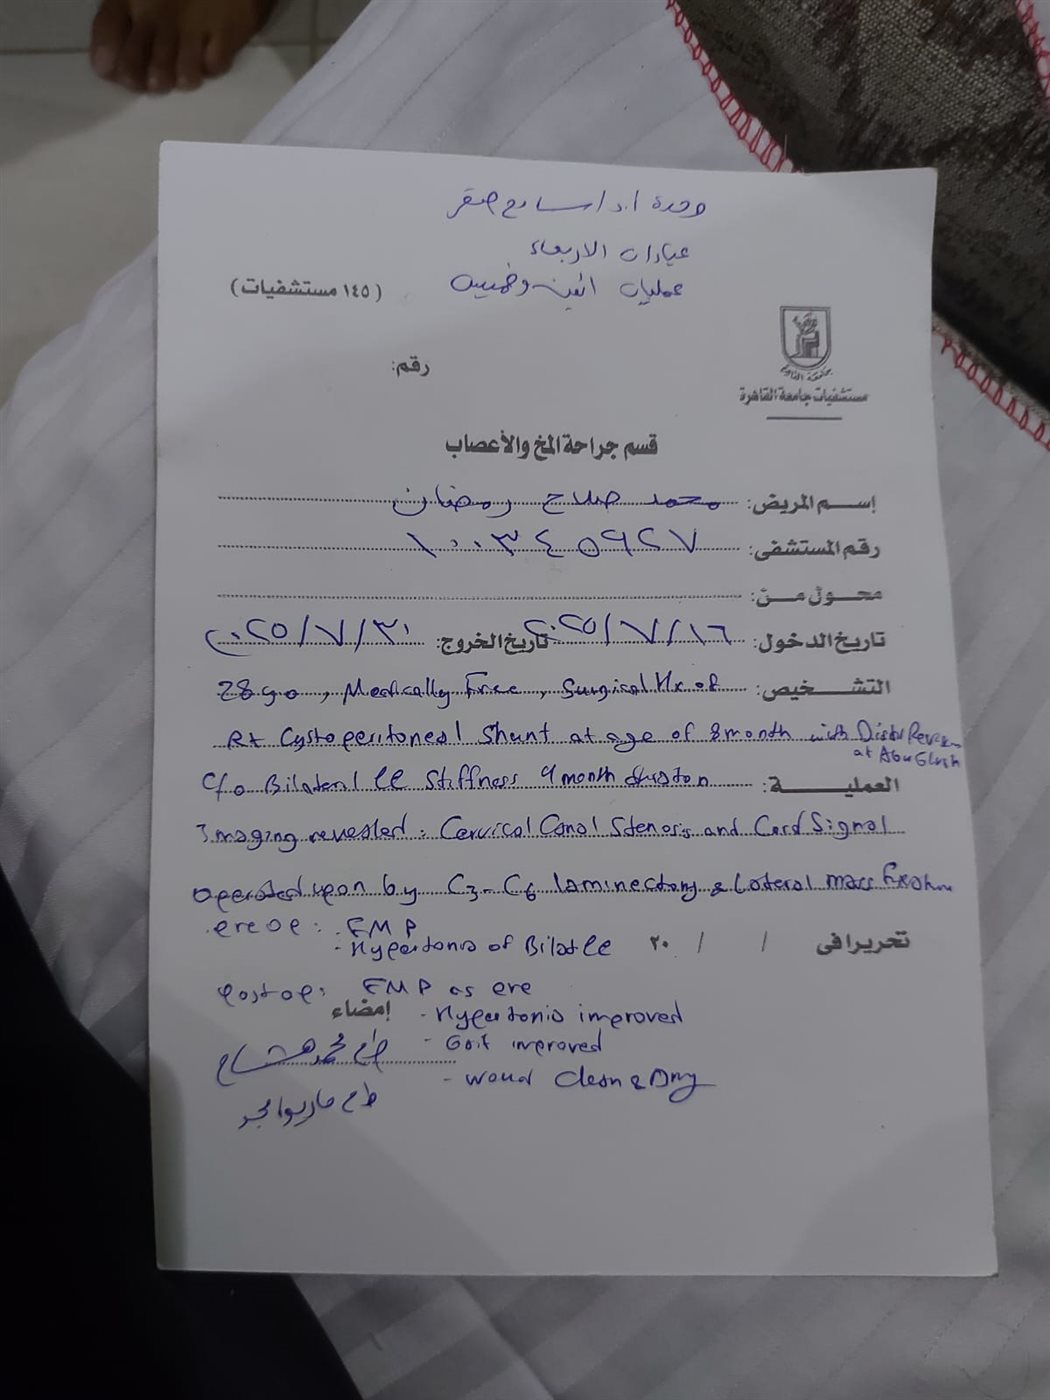 وحدة ا.د/ سامح صقر
عيادات الاربعاء
عمليات اثنين وخميس
(١٤٥ مستشفيات)
جامعة القاهرة
مستشفيات جامعة القاهرة
رقم:
قسم جراحة المخ والأعصاب
إسم المريض: محمد صلاح رمضان
رقم المستشفى: ١٠٠٣٤٥٩٢٧
محول من:
تاريخ الدخول: ٢٠٢٥/٧/١٦ تاريخ الخروج: ٢٠٢٥/٧/٣١
التشخيص: 28 yo, Medically Free, Surgical Hx of
Rt Cystoperitoneal Shunt at age of 8 month with Distal
at Abu
العملية: C/o Bilateral LL Stiffness 9 month
Imaging revealed: Cervical Canal Stenosis and Cord Signal
operated upon by C3-C6 laminectomy & Lateral mass fixation
preop: - FMP
- Hypertonia of Bilat LL
تحريرا في / / ٢٠
postop: FMP as pre
إمضاء - Hypertonia improved
- Gait improved
ط/ محمد هشام
- wound Clean & Dry
ط/ ماريو